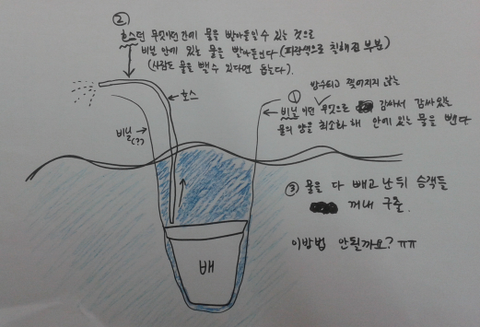 ②
호스던 무엇이던 간에 물을 빨아들일 수 있는 것으로
비닐 안에 있는 물을 빨아들인다 (파란색으로 칠해진 부분)
(사람도 물을 뺄 수 있다면 돕는다).
호스
비닐
(??)
①
방수되고 찢어지지 않는
비닐이던 무엇으로 감싸서 감싸있는
물의 양을 최소화 해 안에 있는 물을 뺀다
③ 물을 다 빼고 난 뒤 승객들
꺼내 구출.
이방법 안될까요? ㅠㅠ
배